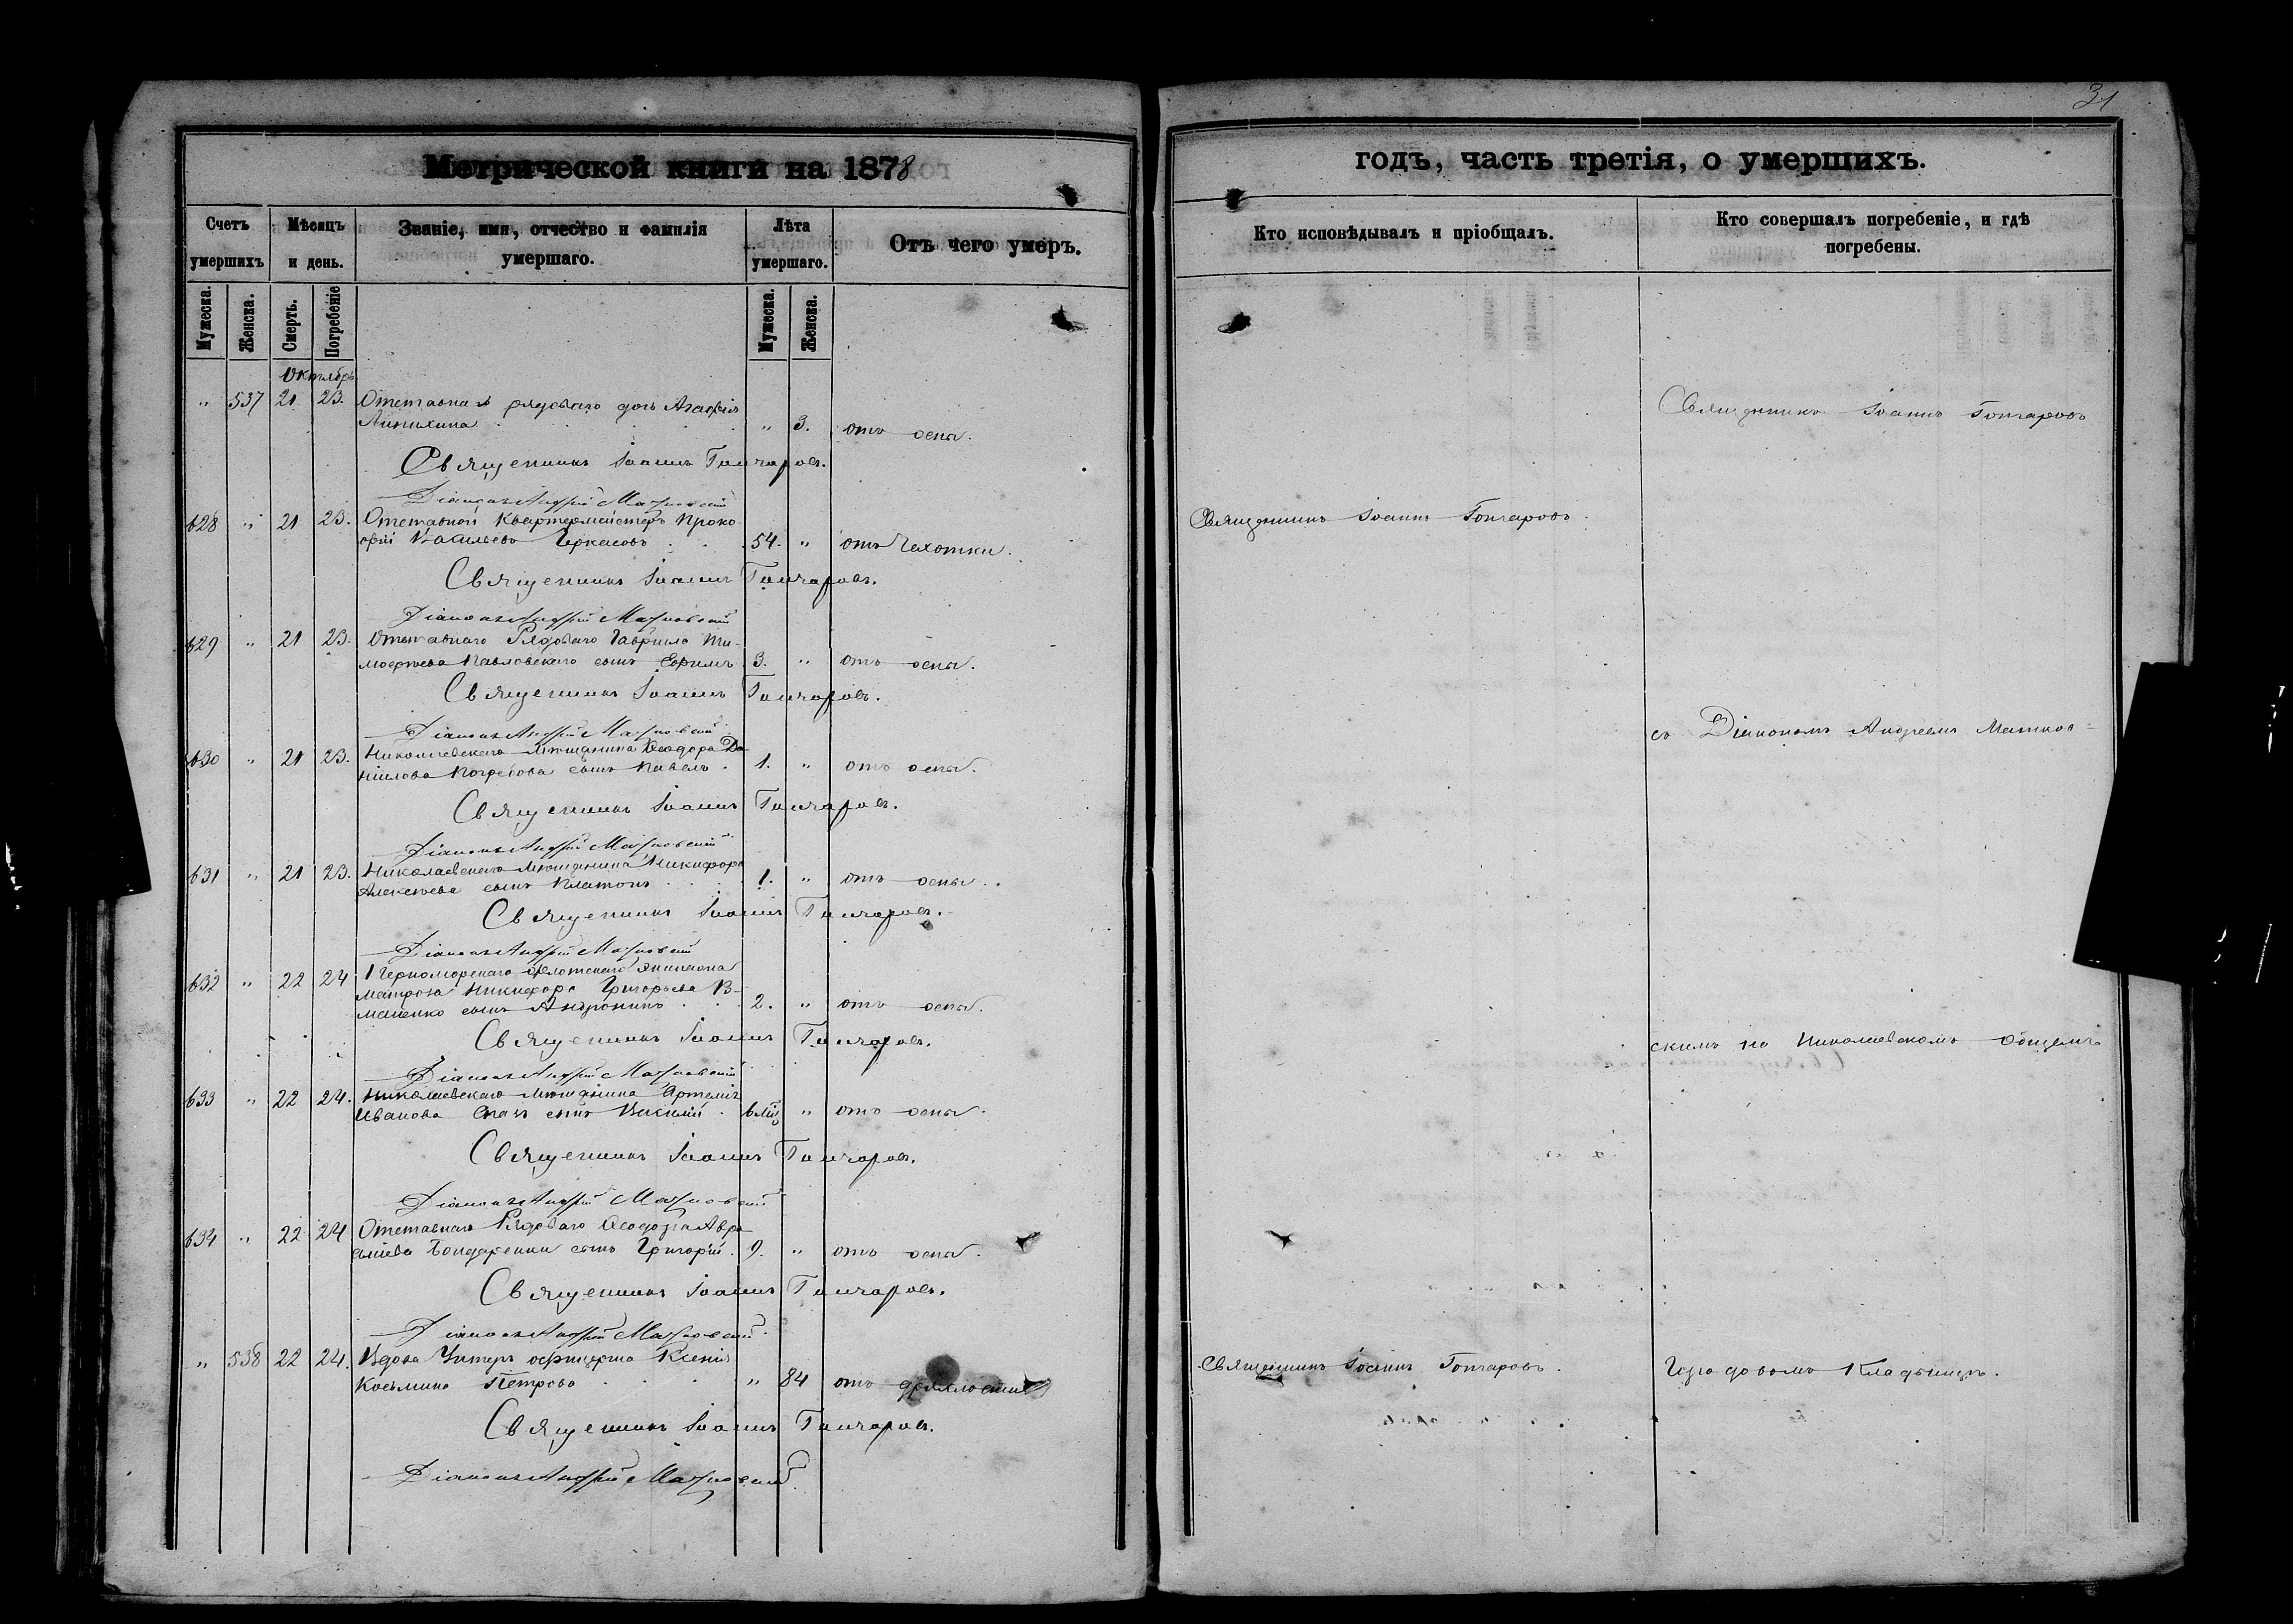 31
Метрической книги на 1878
годъ, часть третія, о умершихъ.
Счетъ умершихъ
Мѣсяцъ и день.
Званіе, имя, отчество и фамилія умершаго.
Лѣта умершаго.
Отъ чего умеръ.
Кто исповѣдывалъ и пріобщалъ.
Кто совершалъ погребеніе, и гдѣ погребены.
Мужеска. Женска. Смерть. Погребеніе Мужеска. Женска.
Октябрь
" 537 21 23. Отставнаго рядоваго дочь Агафія
" 3. отъ оспы.
Священникъ Іоаннъ Гончаровъ
Священникъ Іоаннъ Гончаровъ.
Діаконъ Андрей
628 " 21 23. Отставной Квартермейстеръ Проко-
фій Васильевъ Черкасовъ 54. " отъ чахотки.
Священникъ Іоаннъ Гончаровъ.
Священникъ Іоаннъ Гончаровъ.
Діаконъ Андрей
629 " 21 23. Отставнаго Рядоваго Гавріила Ти-
мофѣева Павловскаго сынъ Ефимъ 3. " отъ оспы.
Священникъ Іоаннъ Гончаровъ.
Діаконъ Андрей
съ Діакономъ Андреемъ
630 " 21 23. Николаевскаго мѣщанина Ѳеодора Да-
ніилова сынъ Павелъ. 1. " отъ оспы.
Священникъ Іоаннъ Гончаровъ.
Діаконъ Андрей
631 " 21 23. Николаевскаго мѣщанина Никифора
Алексѣева сынъ Платонъ 1. " отъ оспы.
Священникъ Іоаннъ Гончаровъ.
Діаконъ Андрей
632 " 22 24 1 Черноморскаго флотскаго экипажа
матроса Никифора Григорьева
сынъ Андроникъ 2. " отъ оспы.
Священникъ Іоаннъ Гончаровъ.
скимъ на Николаевскомъ общемъ
Діаконъ Андрей
633 " 22 24. Николаевскаго мѣщанина Артемія
Иванова сынъ Василій. 6 " отъ оспы.
Священникъ Іоаннъ Гончаровъ.
Діаконъ Андрей
634 " 22 24 Отставнаго Рядоваго Ѳеодора Авра-
аміева Бондаренки сынъ Григорій. 9. " отъ оспы.
Священникъ Іоаннъ Гончаровъ.
Діаконъ Андрей
" 538 22 24. Вдова Унтеръ офицерша Ксенія
Косьмина Петрова " 84 отъ дряхлости
Священникъ Іоаннъ Гончаровъ.
Городовомъ Кладбищѣ.
Священникъ Іоаннъ Гончаровъ.
Діаконъ Андрей